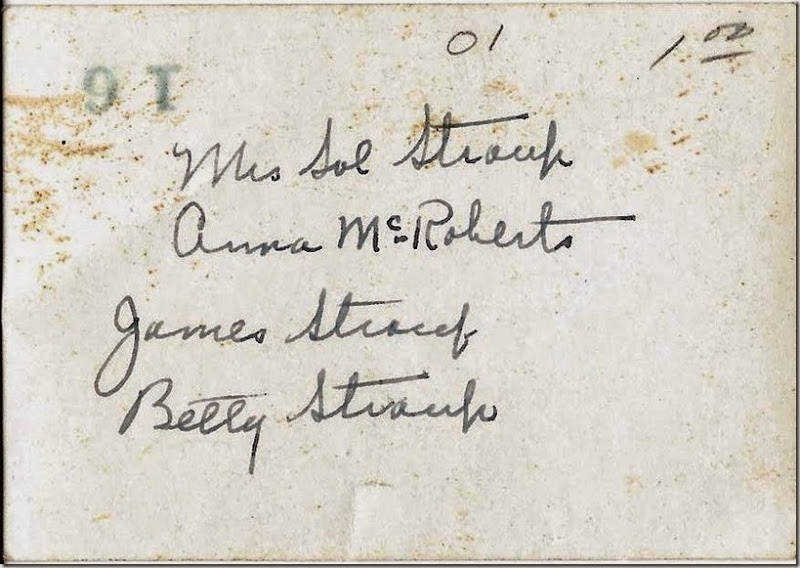 01 1.00
16
Mrs Sol Stroup
Anna McRoberts
James Stroup
Betty Stroup